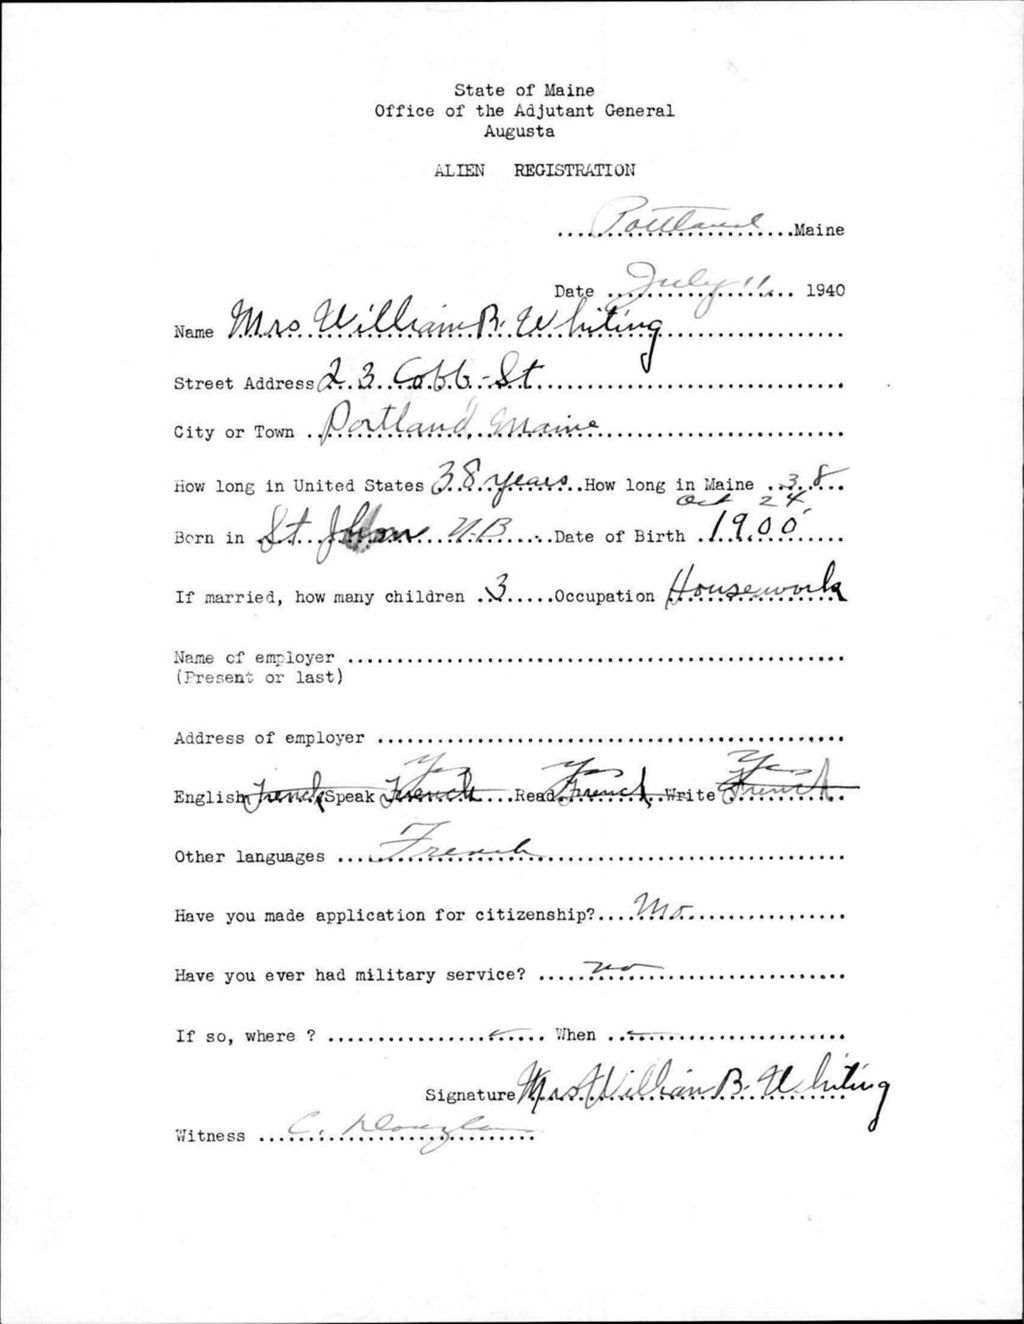 State of Maine
Office of the Adjutant General
Augusta
ALIEN REGISTRATION
Portland Maine
Date July 11 1940
Name Mrs William B. Whiting
Street Address 23 Cobb - St
City or Town Portland, Maine
How long in United States 38 years How long in Maine 38
Oct 24
Born in St John N.B Date of Birth 1900
If married, how many children 3 Occupation Housework
Name of employer
(Present or last)
Address of employer
Yes Yes Yes
English French Speak French Read French Write French
Other languages French
Have you made application for citizenship? No
Have you ever had military service? no
If so, where ? When
Signature Mrs William B. Whiting
Witness C. Douglas